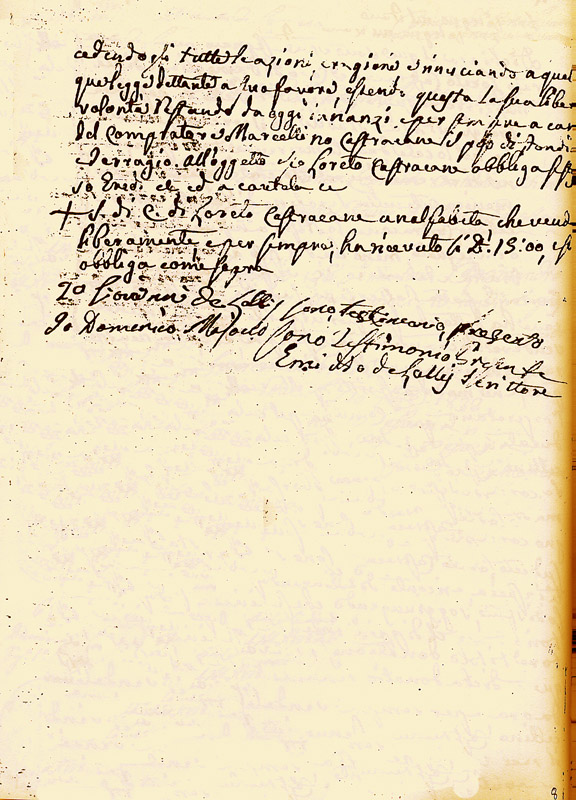 cedendogli tutte le azioni e ragioni e rinunciando a qual
que legge dettante a suo favore essendo questa la sua liber
volontà restando da oggi innanzi e per sempre a car
del Compratore Marcellino Castracane il peso di fondi
Terragio. All'oggetto Loreto Castracane obbliga se
so Eredi ed a cautela
+ S. di C. di Loreto Castracane analfabeta che vend
liberamente e per sempre, ha ricevuto li D.ti 15:00, e si
obbliga come sopra
Io Giovanni de Lallis sono testimonio presente
Io Domenico Masacci sono Testimonio presente
Emidio de Lallis Scrittore
8